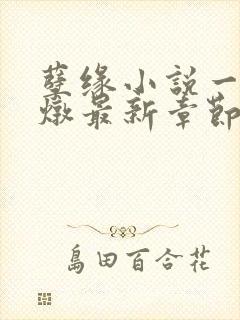 孽缘小说一
燉最新章節
島田百合花